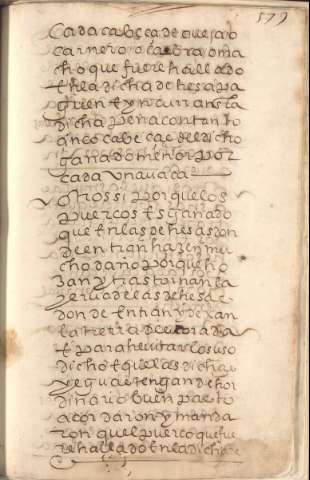 579
Cada cabeça de oveja o
carnero o cabra o ma
cho que fuere hallado
En la dicha dehesa pa
guen E yncurran En la
dicha pena contanto
cinco cabeças del dicho
ganado menor por
cada una vaca
Otrossi por que los
puercos Es ganado
que En las dehesas don
de entran hazen mu
cho daño porque ho
zan y trastornan la
yerva de las dehesas
donde Entran y dexan
la tierra
E para hevitar lo suso
dicho E que las dichas
yeguas tengan de hor
dinario buen pasto
acordaron y manda
ron quel puerco que fue
re hallado En la dicha